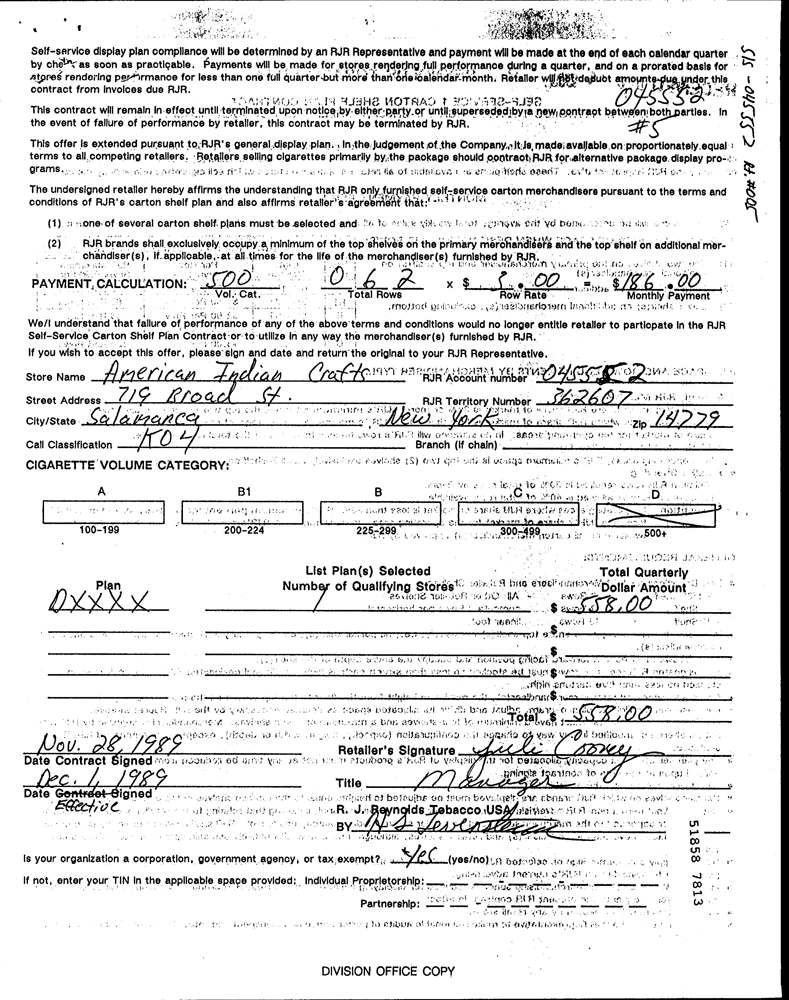 Self-service display plan compliance will be determined by an RJR Representative and payment will be made at the end of each calendar quarter
by check as soon as practicable. Payments will be made for stores rendering full performance during a quarter, and on a prorated basis for
stores rendering performance for less than one full quarter but more than one calendar month. Retailer will not deduct amounts due under this
contract from invoices due RJR.
045552
#5
This contract will remain in effect until terminated upon notice by either party or until superseded by a new contract between both parties. In
the event of failure of performance by retailer, this contract may be terminated by RJR.
This offer is extended pursuant to RJR's general display plan. In the judgement of the Company, it is made available on proportionately equal
terms to all competing retailers. Retailers selling cigarettes primarily by the package should contract RJR for alternative package display pro-
grams.
The undersigned retailer hereby affirms the understanding that RJR only furnished self-service carton merchandisers pursuant to the terms and
conditions of RJR's carton shelf plan and also affirms retailer's agreement that:
(1) one of several carton shelf plans must be selected and
(2) RJR brands shall exclusively occupy a minimum of the top shelves on the primary merchandisers and the top shelf on additional mer-
chandiser(s), if applicable, at all times for the life of the merchandiser(s) furnished by RJR.
PAYMENT CALCULATION: 500 062 x $ 3.00 = $186.00
Vol. Cat. Total Rows Row Rate Monthly Payment
We/I understand that failure of performance of any of the above terms and conditions would no longer entitle retailer to particpate in the RJR
Self-Service Carton Shelf Plan Contract or to utilize in any way the merchandiser(s) furnished by RJR.
If you wish to accept this offer, please sign and date and return the original to your RJR Representative.
Store Name American Indian Crafts RJR Account number 045552
Street Address 719 Broad St. RJR Territory Number 362607
City/State Salamanca New York Zip 14779
Call Classification K04 Branch (if chain)
CIGARETTE VOLUME CATEGORY:
A B1 B C D
100-199 200-224 225-299 300-499 500+
List Plan(s) Selected Total Quarterly
Plan Number of Qualifying Stores Dollar Amount
DXXXX 1 $ 558.00
$
$
$
$
Total $ 558.00
Nov. 28, 1989 Retailer's Signature Juli Cooney
Date Contract Signed
Dec. 1, 1989 Title Manager
Date Contract Signed
Effective
R. J. Reynolds Tobacco USA
BY
Is your organization a corporation, government agency, or tax exempt? Yes (yes/no)
If not, enter your TIN in the applicable space provided: Individual Proprietorship:
Partnership:
DIVISION OFFICE COPY
51858 7813